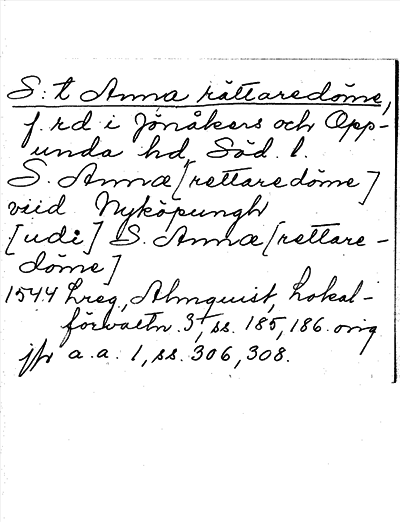 S:t Anna rättaredöme,
f. rd i Jönåkers och Opp-
unda hd, Söd. l.
S. Annæ [rettaredöme]
viid Nyköpungh
[udi] S. Annæ [rettare-
döme]
1544 Lreg, Almquist, Lokal-
förvaltn. 3, ss. 185, 186. orig
jfr a.a. 1, ss. 306, 308.